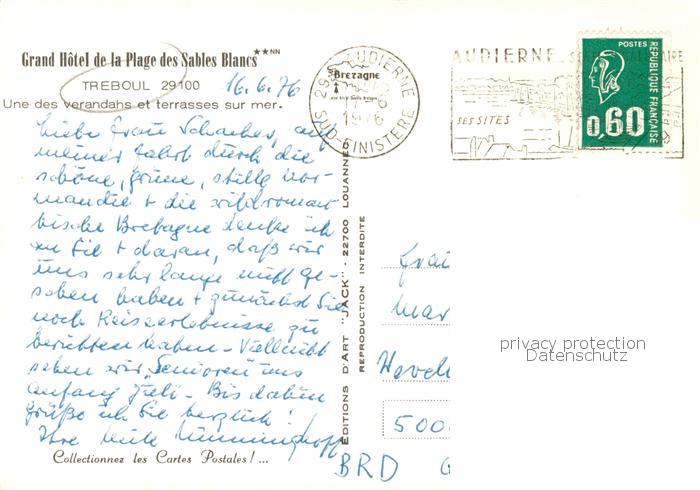 Grand Hôtel de la Plage des Sables Blancs **NN
TREBOUL 29100
16.6.76
Une des verandahs et terrasses sur mer.
Liebe Frau Schacher, auf
meiner Fahrt durch die
schöne, grüne, stille Nor-
mandie + die wildroman-
tische Bretagne denke ich
an Sie + daran, daß wir
uns sehr lange nicht ge-
sehen haben + zunächst Sie
noch Reiseerlebnisse zu
berichten haben - Vielleicht
sehen wir "Senioren" uns
anfang Juli - Bis dahin
grüße ich Sie herzlich!
Ihre
Collectionnez les Cartes Postales ! ...
EDITIONS D'ART "JACK" - 22700 LOUANNEC
REPRODUCTION INTERDITE
29S AUDIERNE
Bretagne
1976
SUD-FINISTERE
AUDIERNE
SES SITES
POSTES
REPUBLIQUE FRANÇAISE
0,60
Frau
Mar
500
BRD
privacy protection
Datenschutz